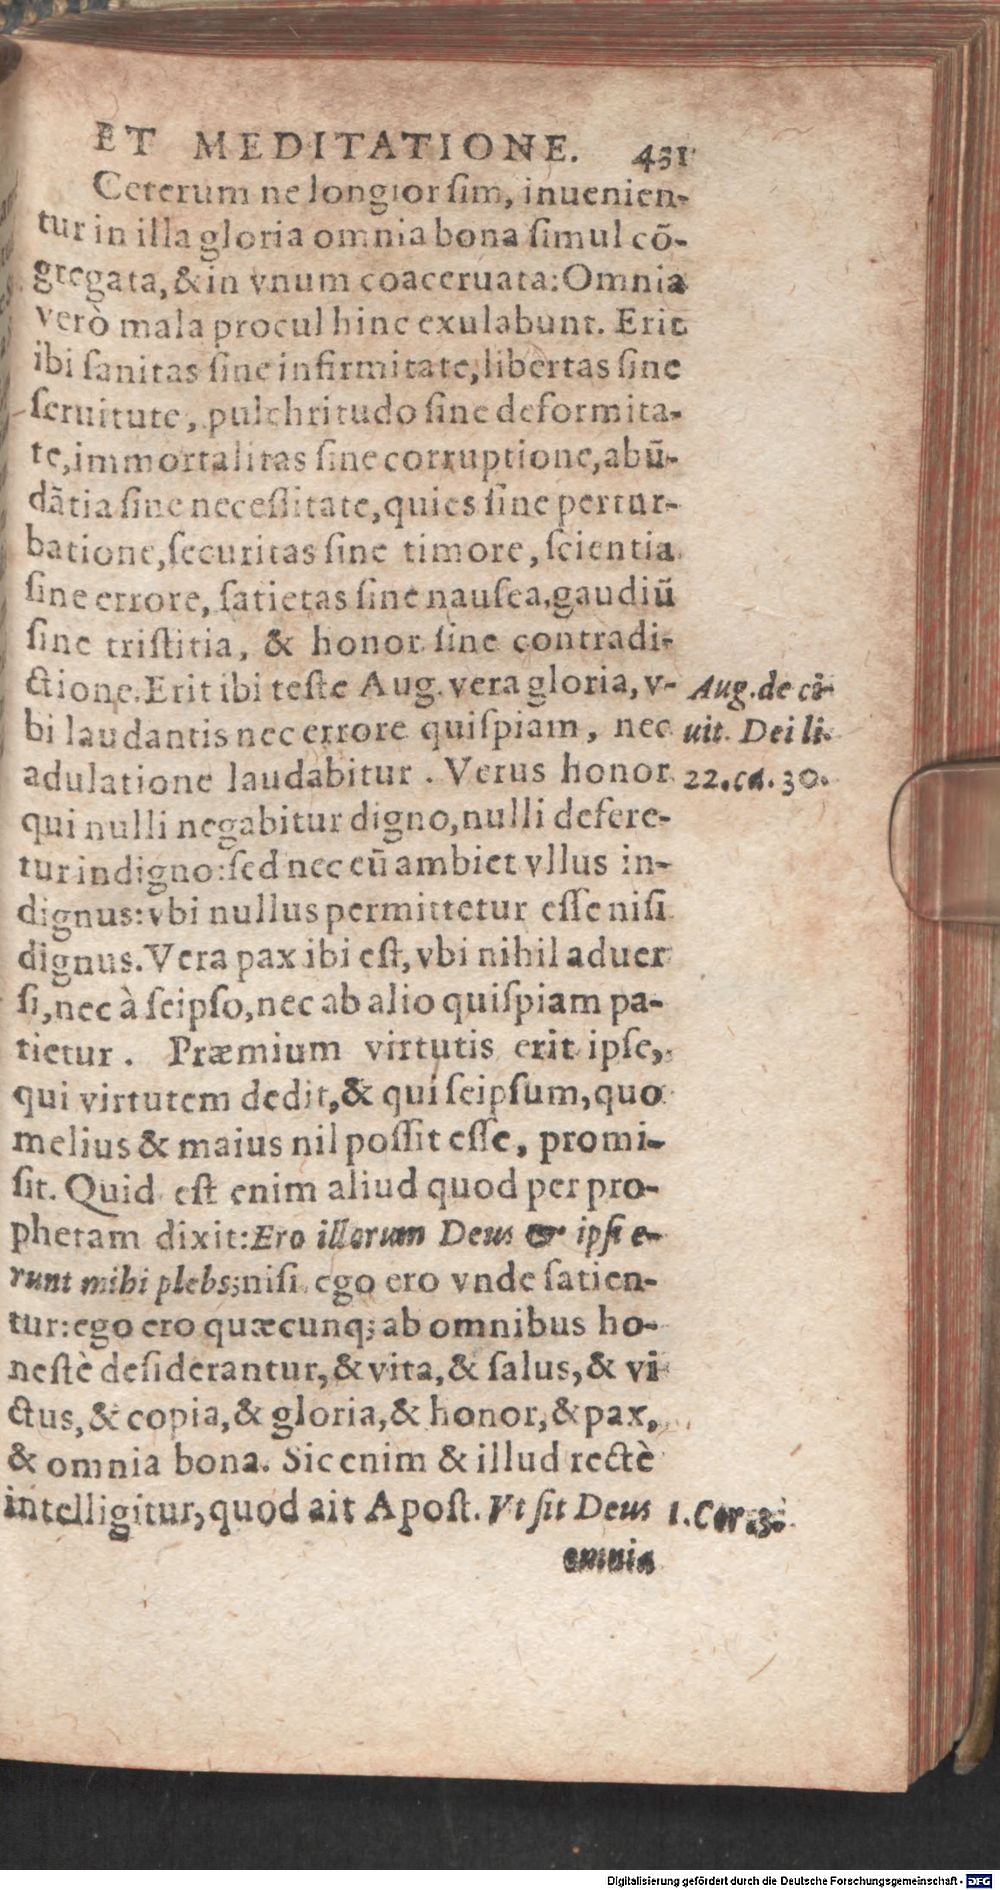 ET MEDITATIONE. 431
Ceterum ne longior ſim, inuenien-
tur in illa gloria omnia bona ſimul cõ-
gregata, & in vnum coaceruata: Omnia
verò mala procul hinc exulabunt. Erit
ibi ſanitas ſine infirmitate, libertas ſine
ſeruitute, pulchritudo ſine deformita-
te, immortalitas ſine corruptione, abũ-
dãtia ſine neceſſitate, quies ſine pertur-
batione, ſecuritas ſine timore, ſcientia
ſine errore, ſatietas ſine nauſea, gaudiũ
ſine triſtitia, & honor ſine contradi-
ctione. Erit ibi teſte Aug. vera gloria, v-
bi laudantis nec errore quiſpiam, nec
adulatione laudabitur. Verus honor
qui nulli negabitur digno, nulli defere-
tur indigno: ſed nec eũ ambiet vllus in-
dignus: vbi nullus permittetur eſſe niſi
dignus. Vera pax ibi eſt, vbi nihil aduer
ſi, nec à ſeipſo, nec ab alio quiſpiam pa-
tietur. Præmium virtutis erit ipſe,
qui virtutem dedit, & qui ſeipſum, quo
melius & maius nil poſſit eſſe, promi-
ſit. Quid eſt enim aliud quod per pro-
phetam dixit: Ero illorum Deus & ipſi e-
runt mihi plebs; niſi ego ero vnde ſatien-
tur: ego ero quæcunq; ab omnibus ho-
neſtè deſiderantur, & vita, & ſalus, & vi
ctus, & copia, & gloria, & honor, & pax,
& omnia bona. Sic enim & illud rectè
intelligitur, quod ait Apoſt. Vt ſit Deus
omnia
Aug. de ci-
uit. Dei li.
22. ca. 30.
1. Cor.
Digitalisierung gefördert durch die Deutsche Forschungsgemeinschaft - DFG